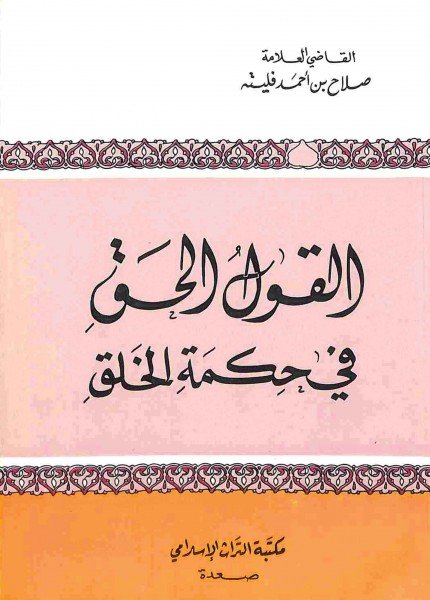 القاضي العلامة
صلاح بن أحمد فليته
القول الحق
في حكمة الخلق
مكتبة التراث الإسلامي
صعدة